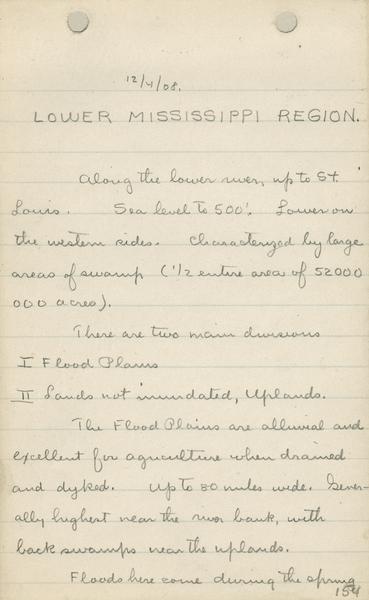 12/4/08.
LOWER MISSISSIPPI REGION.
Along the lower river, up to St.
Louis. Sea level to 500'. Lower on
the western sides. Characterized by large
areas of swamp (1/2 entire area of 52000
000 acres).
There are two main divisions
I Flood Plains
II Lands not inundated, Uplands.
The Flood Plains are alluvial and
excellent for agriculture when drained
and dyked. Up to 80 miles wide. Gener-
ally highest near the river bank, with
back swamps near the uplands.
Floods here come during the spring
154